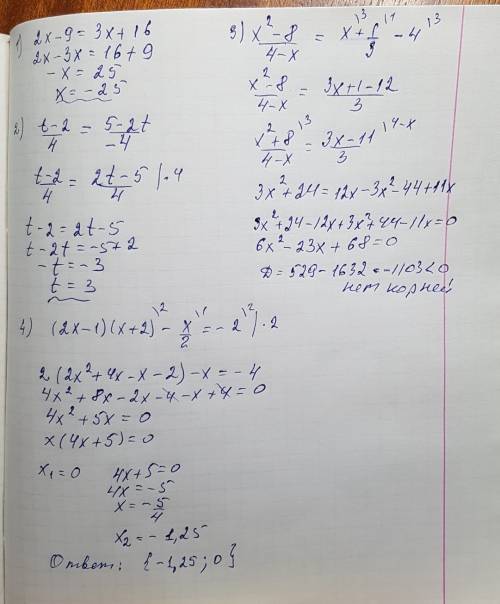 1) 2x-9 = 3x+16
2x-3x = 16+9
-x = 25
x = -25
2) t-2/4 = 5-2t/-4
t-2/4 = 2t-5/4 |·4
t-2 = 2t-5
t-2t = -5+2
-t = -3
t = 3
3) x²-8/4-x = x\3 + 1/3\1 - 4\3
x²-8/4-x = 3x+1-12/3
x²+8/4-x\3 = 3x-11/3\4-x
3x²+24 = 12x-3x²-44+11x
3x²+24-12x+3x²+44-11x=0
6x²-23x+68=0
D = 529-1632 = -1103<0
нет корней
4) (2x-1)(x+2)\2 - x/2\1 = -2\2 |·2
2(2x²+4x-x-2)-x = -4
4x²+8x-2x-4-x+4=0
4x²+5x=0
x(4x+5)=0
x₁=0
4x+5=0
4x=-5
x=-5/4
x₂=-1,25
Ответ: {-1,25; 0}